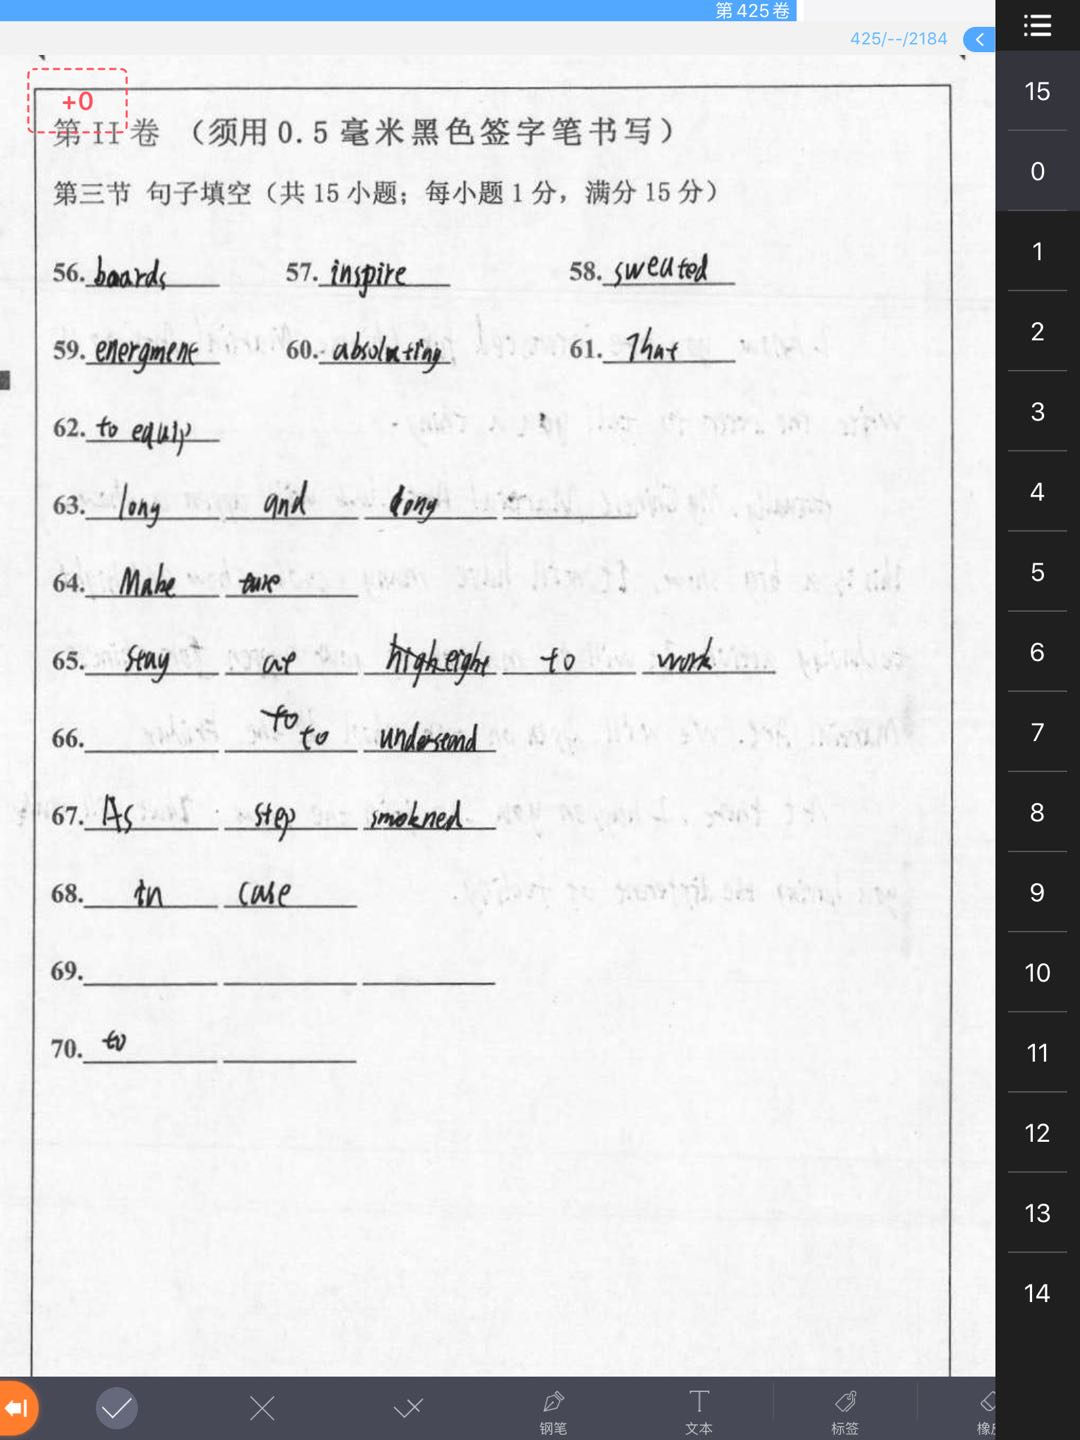 第425卷
425/--/2184
+0
第II卷 （须用0.5毫米黑色签字笔书写）
第三节 句子填空（共15小题；每小题1分，满分15分）
56. boards 57. inspire 58. sweated
59. energment 60. absoluting 61. That
62. to equip
63. long and long
64. Make
65. stay at to work
66. to to understand
67. As step smokned
68. in case
69.
70. to
15
0
1
2
3
4
5
6
7
8
9
10
11
12
13
14
钢笔 文本 标签